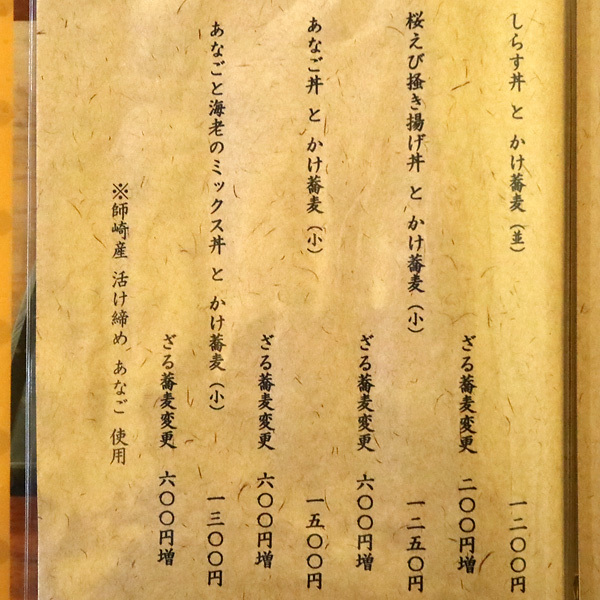 しらす丼 と かけ蕎麦（並） 一二〇〇円
ざる蕎麦変更 二〇〇円増
桜えび掻き揚げ丼 と かけ蕎麦（小） 一二五〇円
ざる蕎麦変更 六〇〇円増
あなご丼 と かけ蕎麦（小） 一五〇〇円
ざる蕎麦変更 六〇〇円増
あなごと海老のミックス丼 と かけ蕎麦（小） 一三〇〇円
ざる蕎麦変更 六〇〇円増
※師崎産 活け締め あなご 使用